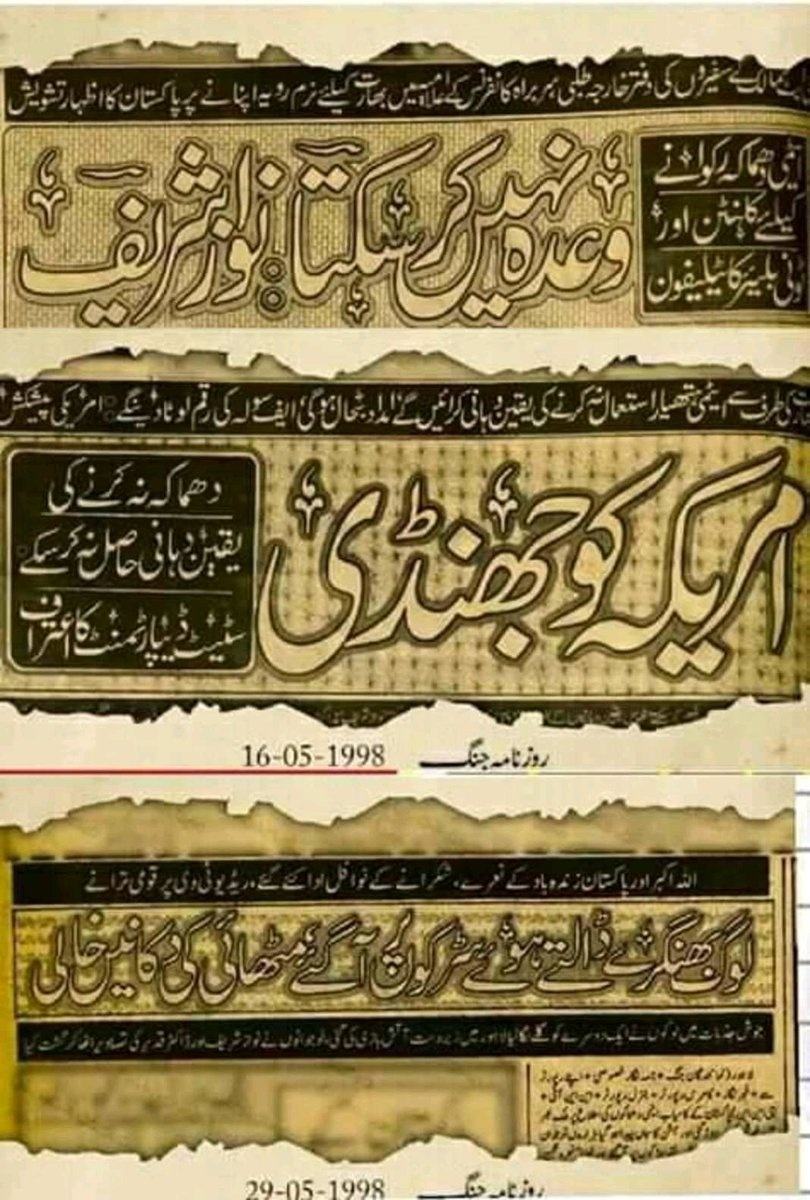 ممالک کے سفیروں کی دفتر خارجہ طلبی، سربراہ کانفرنس کے اعلامیہ میں بھارت کیلئے نرم رویہ اپنانے پر پاکستان کا اظہار تشویش
ایٹمی دھماکہ رکوانے
کیلئے کلنٹن اور
ٹونی بلیئر کا ٹیلیفون
وعدہ نہیں کر سکتا: نواز شریف
کی طرف سے ایٹمی ہتھیار استعمال نہ کرنے کی یقین دہانی کرائیں گے، امداد بحال ہوگی، ایف سولہ کی رقم لوٹا دینگے: امریکی پیشکش
امریکہ کو جھنڈی
دھماکہ نہ کرنے کی
یقین دہانی حاصل نہ کر سکے
سٹیٹ ڈیپارٹمنٹ کا اعتراف
روزنامہ جنگ 16-05-1998
اللہ اکبر اور پاکستان زندہ باد کے نعرے، شکرانے کے نوافل ادا کئے گئے، ریڈیو ٹی وی پر قومی ترانے
لوگ بھنگڑے ڈالتے ہوئے سڑکوں پر آ گئے، مٹھائی کی دکانیں خالی
جوش جذبات میں لوگوں نے ایک دوسرے کو گلے لگا لیا، لاہور میں زبردست آتش بازی کی گئی، نوجوانوں نے نواز شریف اور ڈاکٹر قدیر کی تصاویر اٹھا کر گشت کیا
روزنامہ جنگ 29-05-1998